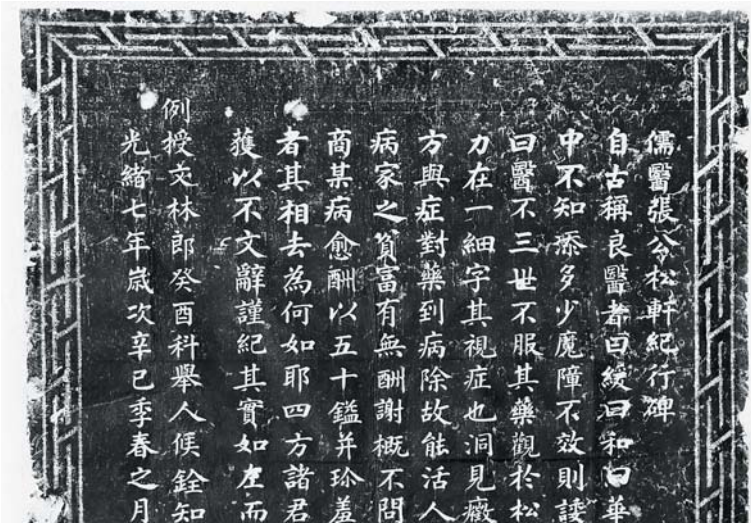 儒醫張公松軒紀行碑
自古稱良醫者曰緩曰和曰華
中不知添多少魔障不效則諉
曰醫不三世不服其藥觀於松
力在一細字其視症也洞見癥
方與症對藥到病除故能活人
病家之貧富有無酬謝概不問
商某病愈酬以五十鎰并珍羞
者其相去為何如耶四方諸君
獲以不文辭謹紀其實如左而
例授文林郎癸酉科舉人候銓知
光緒七年歲次辛巳季春之月